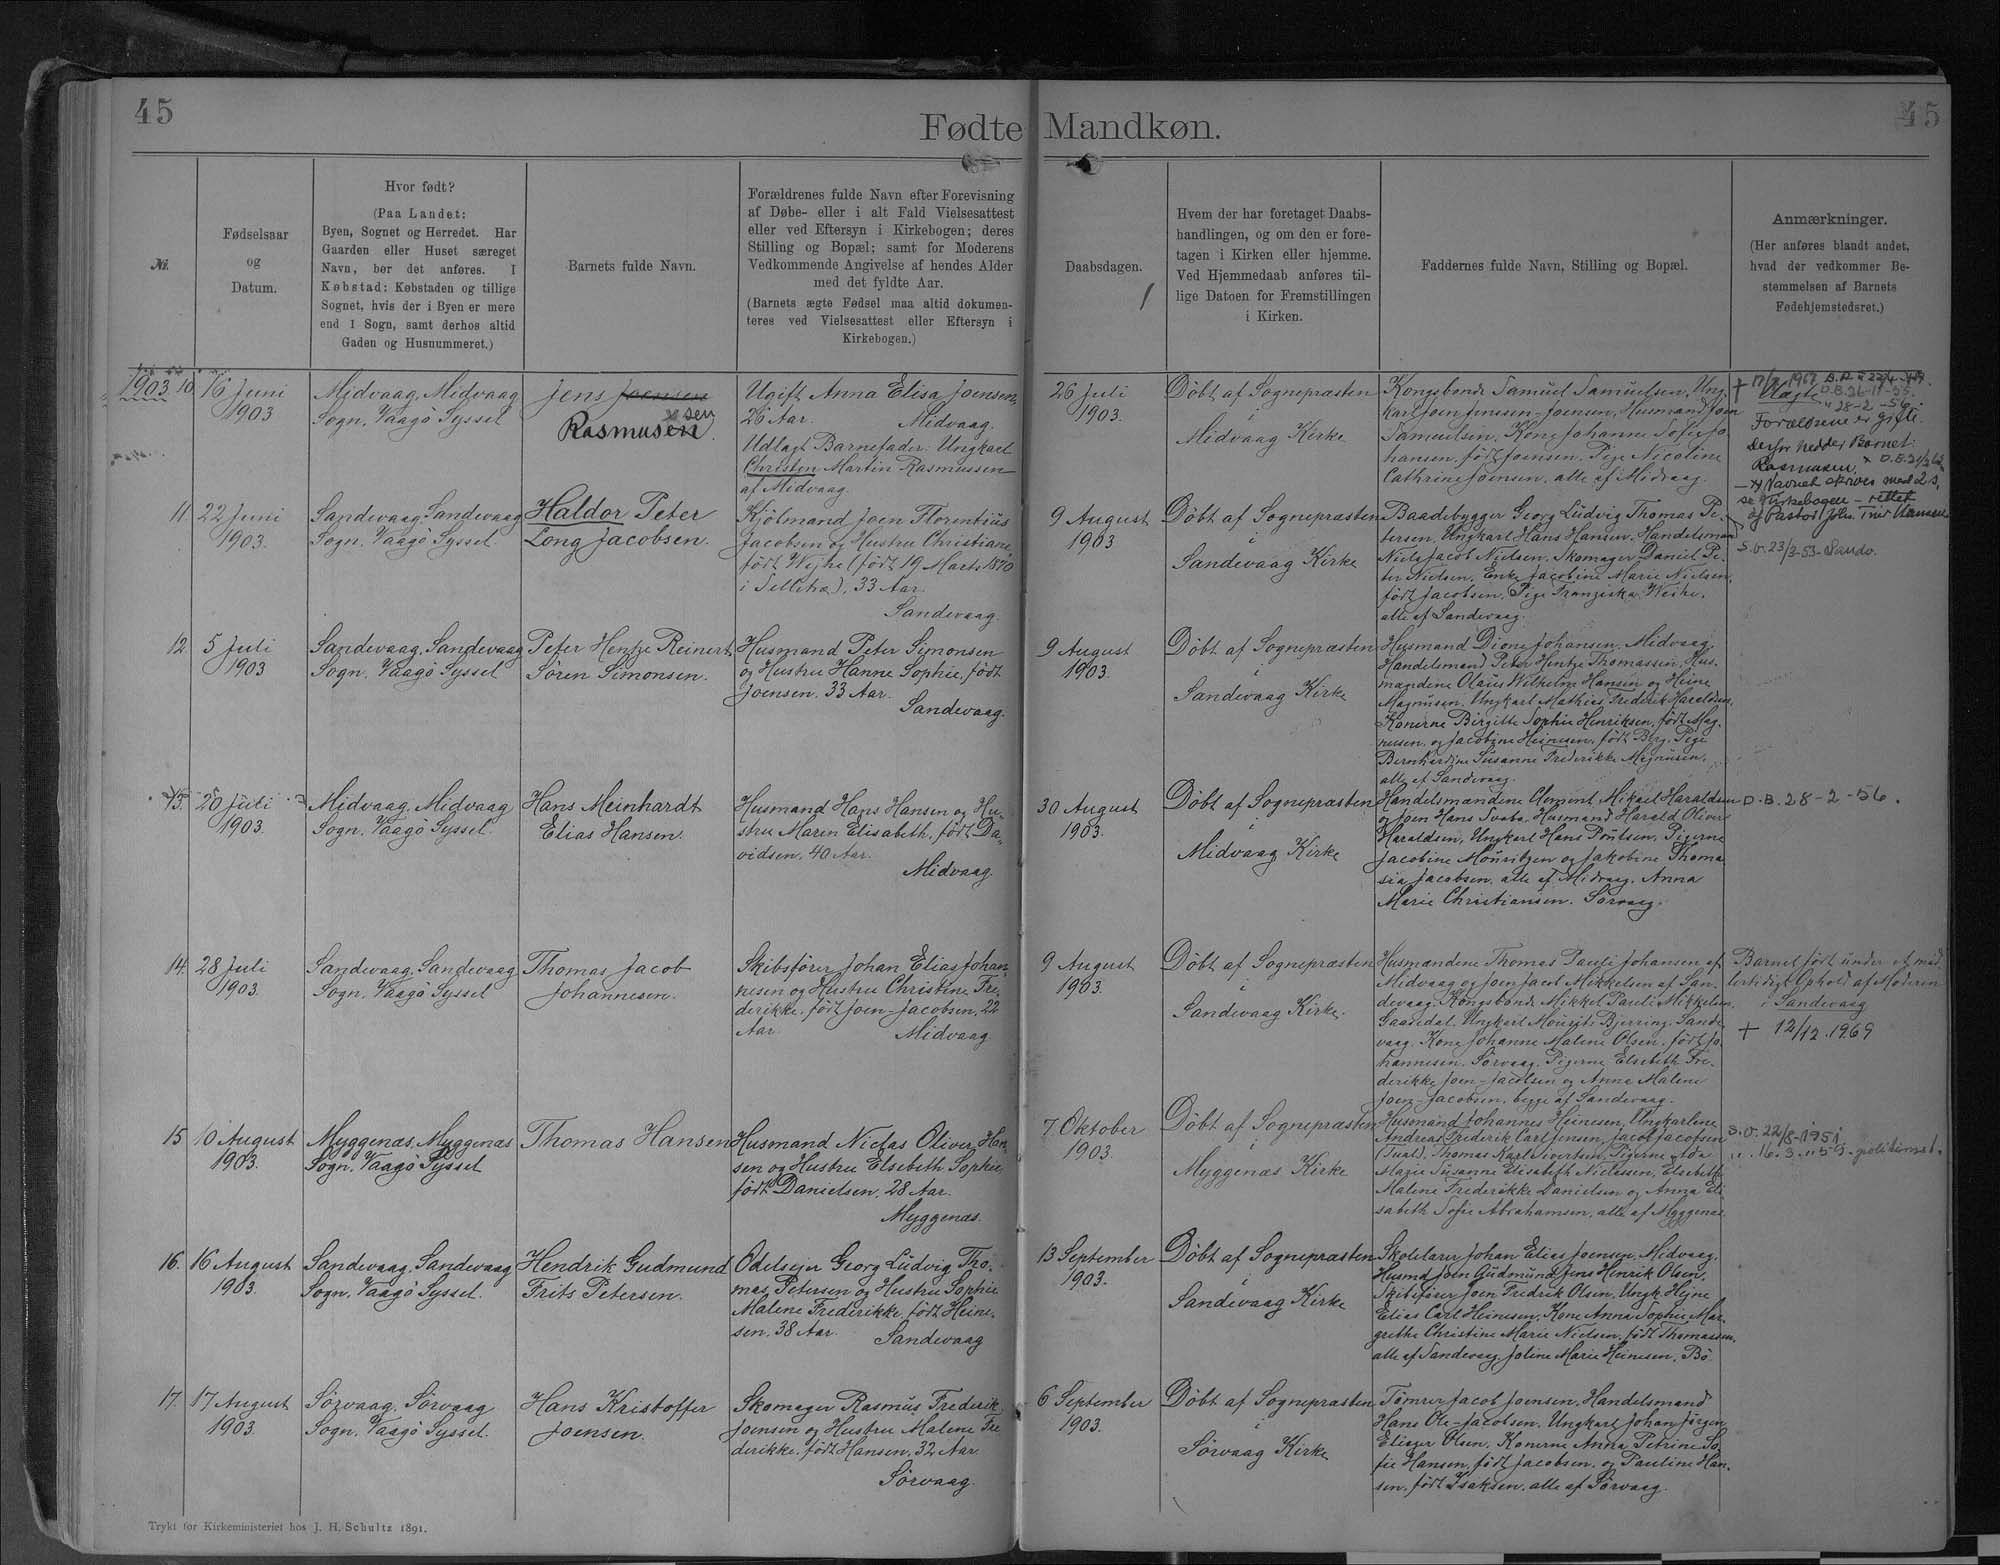 45
Fødte Mandkøn.
45
№.
Fødselsaar
og
Datum.
Hvor født?
(Paa Landet:
Byen, Sognet og Herredet. Har
Gaarden eller Huset særeget
Navn, bør det anføres. I
Købstad: Købstaden og tillige
Sognet, hvis der i Byen er mere
end 1 Sogn, samt derhos altid
Gaden og Husnummeret.)
Barnets fulde Navn.
Forældrenes fulde Navn efter Forevisning
af Døbe- eller i alt Fald Vielsesattest
eller ved Eftersyn i Kirkebogen; deres
Stilling og Bopæl; samt for Moderens
Vedkommende Angivelse af hendes Alder
med det fyldte Aar.
(Barnets ægte Fødsel maa altid dokumen-
teres ved Vielsesattest eller Eftersyn i
Kirkebogen.)
Daabsdagen.
Hvem der har foretaget Daabs-
handlingen, og om den er fore-
tagen i Kirken eller hjemme.
Ved Hjemmedaab anføres til-
lige Datoen for Fremstillingen
i Kirken.
Faddernes fulde Navn, Stilling og Bopæl.
Anmærkninger.
(Her anføres blandt andet,
hvad der vedkommer Be-
stemmelsen af Barnets
Fødehjemstedsret.)
1903. 10.
16 Juni
1903
Midvaag, Midvaag
Sogn, Vaagö Syssel
Jens Joensen
sen
Rasmusen
Ugift Anna Elisa Joensen,
26 Aar. Midvaag.
Udlagt Barnefader: Ungkarl
Christen Martin Rasmussen
af Midvaag.
26 Juli
1903.
Döbt af Sognepræsten
i
Midvaag Kirke
Kongsbonde Samuel Samuelsen, Ung-
karl Joen Jensen-Joensen, Husmand Joen
Samuelsen, Kone Johanne Sofie Jo-
hansen, født Joensen, Pige Nicoline
Cathrine Joensen, alle af Midvaag.
D.B. 26-11-55.
" 28-2-56
Forældrene er gifte.
derfor hedder Barnet:
Rasmusen.
x) Navnet skrives med 2 s,
se Kirkebogen - rettet
af Pastor
11.
22 Juni
1903.
Sandevaag, Sandevaag
Sogn, Vaagö Syssel.
Haldor Peter
Long Jacobsen.
Kjölmand Joen Florentius
Jacobsen og Hustru Christiane,
født Weihe (født 19 Marts 1870
i Selletræ), 33 Aar.
Sandevaag.
9 August
1903
Döbt af Sognepræsten
i
Sandevaag Kirke
Baadebygger Georg Ludvig Thomas Pe-
tersen, Ungkarl Hans Hansen, Handelsmand
Niels Jacob Nielsen, Skomager Daniel Pe-
ter Nielsen, Enke Jacobine Marie Nielsen,
født Jacobsen, Pige Franziska Weihe,
alle af Sandevaag.
S.V. 23/3-53 - Sandv.
12.
5 Juli
1903
Sandevaag, Sandevaag
Sogn, Vaagö Syssel
Peter Hentze Reinert
Sören Simonsen.
Husmand Peter Simonsen
og Hustru Hanne Sophie, født
Joensen, 33 Aar.
Sandevaag.
9 August
1903.
Döbt af Sognepræsten
i
Sandevaag Kirke
Husmand Dione Johansen, Midvaag,
Handelsmand Peter Hentze Thomassen, Hus-
mændene Olaus Wilhelm Hansen og Heine
Magnusen, Ungkarl Mathias Frederik Haraldsen,
Konerne Birgitte Sophie Henriksen, født Mag-
nusen, og Jacobine Heinesen, født Berg, Pige
Bernhardine Susanne Frederikke Magnusen,
alle af Sandevaag.
13.
20 Juli
1903.
Midvaag, Midvaag
Sogn, Vaagö Syssel.
Hans Meinhardt
Elias Hansen.
Husmand Hans Hansen og Hu-
stru Maren Elisabeth, født Da-
vidsen, 40 Aar.
Midvaag.
30 August
1903.
Döbt af Sognepræsten
i
Midvaag Kirke
Handelsmændene Clement Mikael Haraldsen
og Joen Hans Svabo, Husmand Harald Oliver
Haraldsen, Ungkarl Hans Poulsen, Pigerne
Jacobine Mouritzen og Jakobine Thoma-
sia Jacobsen, alle af Midvaag, Anna
Marie Christiansen, Sörvaag.
D.B. 28-2-56.
14.
28 Juli
1903.
Sandevaag, Sandevaag
Sogn, Vaagö Syssel
Thomas Jacob
Johannesen.
Skibsfører Johan Elias Johan-
nesen og Hustru Christine Fre-
derikke, født Joen-Jacobsen, 22
Aar. Midvaag.
9 August
1903.
Döbt af Sognepræsten
i
Sandevaag Kirke.
Husmændene Thomas Pauli Johansen af
Midvaag og Joen Jacob Mikkelsen af San-
devaag, Kongsbonde Mikkel Pauli Mikkelsen,
Gaasedal, Ungkarl Mourits Bjerring, Sande-
vaag, Kone Johanne Malene Olsen, født Jo-
hannesen, Sörvaag, Pigerne Elsebeth Fre-
derikke Joen-Jacobsen og Anna Malene
Joen-Jacobsen, begge af Sandevaag.
Barnet født under et mid-
lertidigt Ophold af Moderen
i Sandevaag
+ 12/12 1969
15
10 August
1903.
Myggenæs, Myggenæs
Sogn, Vaagö Syssel
Thomas Hansen
Husmand Niclas Oliver Han-
sen og Hustru Elsebeth Sophie,
født Danielsen, 28 Aar.
Myggenæs.
7 Oktober
1903.
Döbt af Sognepræsten
i
Myggenæs Kirke
Husmand Johannes Heinesen, Ungkarlene
Andreas Frederik Carl Jensen, Jacob Jacobsen
Thomas Karl Sivertsen, Pigerne
Maria Susanne Elisabeth Niclassen, Elsebeth
Malene Frederikke Danielsen og Anna Eli-
sabeth Sofie Abrahamsen, alle af Myggenæs
S.V. 22/8-1951
" 16.3.-53 - politimst.
16.
16 August
1903.
Sandevaag, Sandevaag
Sogn, Vaagö Syssel.
Hendrik Gudmund
Frits Petersen.
Odelsejer Georg Ludvig Tho-
mas Petersen og Hustru Sophie
Malene Frederikke, født Heine-
sen, 38 Aar. Sandevaag
13 September
1903.
Döbt af Sognepræsten
i
Sandevaag Kirke
Skolelærer Johan Elias Joensen, Midvaag,
Husmd Joen Gudmund Jens Henrik Olsen,
Skibsfører Joen Fredrik Olsen, Ungk. Hejne
Elias Carl Heinesen, Kone Anna Sophie Mar-
grethe Christine Marie Nielsen, født Thomassen,
alle af Sandevaag, Joline Marie Heinesen, Bö
17.
17 August
1903.
Sörvaag, Sörvaag
Sogn, Vaagö Syssel.
Hans Kristoffer
Joensen.
Skomager Rasmus Frederik
Joensen og Hustru Malene Fre-
derikke, født Hansen, 32 Aar.
Sörvaag.
6 September
1903.
Döbt af Sognepræsten
i
Sörvaag Kirke
Tömrer Jacob Joensen, Handelsmand
Hans Ole-Jacobsen, Ungkarl Johan Jörgen
Eliezer Olsen, Konerne Anna Petrine So-
fie Hansen, født Jacobsen, og Pauline Han-
sen, født Isaksen, alle af Sörvaag.
Trykt for Kirkeministeriet hos J. H. Schultz 1891.